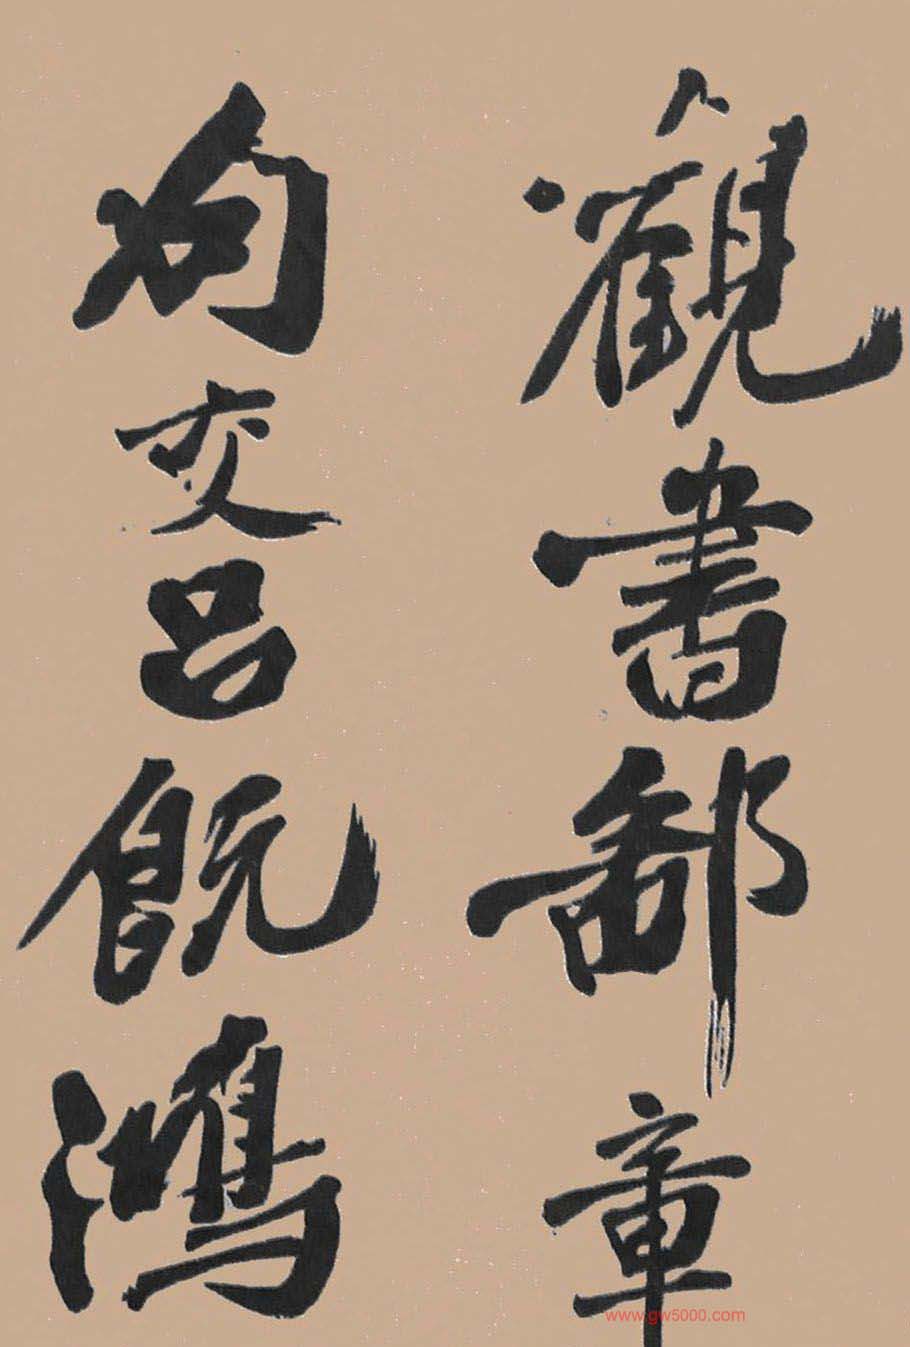 觀書鄙章
句交呂既鴻
www.gw5000.com